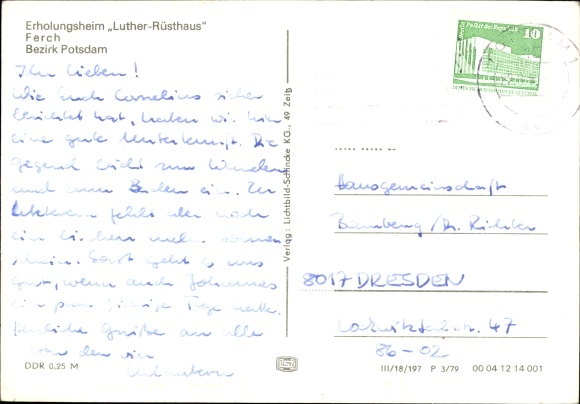 Erholungsheim „Luther-Rüsthaus"
Ferch
Bezirk Potsdam
Ihr Lieben!
Wie Euch Cornelius sicher
berichtet hat, haben wir hier
eine gute Unterkunft. Die
Gegend lädt zum Wandern
und zum Baden ein. Zu
letzterem fehlt aber noch
ein bißchen mehr Sonnen-
schein. Sonst geht es uns
gut, wenn auch Johannes
ein paar Tage
Herzliche Grüße an alle
von den vier
DDR 0,25 M
Verlag: Lichtbild-Schincke KG., 49 Zeitz
Berlin Palast der Republik
10
DEUTSCHE DEMOKRATISCHE REPUBLIK
Hausgemeinschaft
/Dr. Richter
8017 DRESDEN
47
86-02
III/18/197 P 3/79 00 04 12 14 001